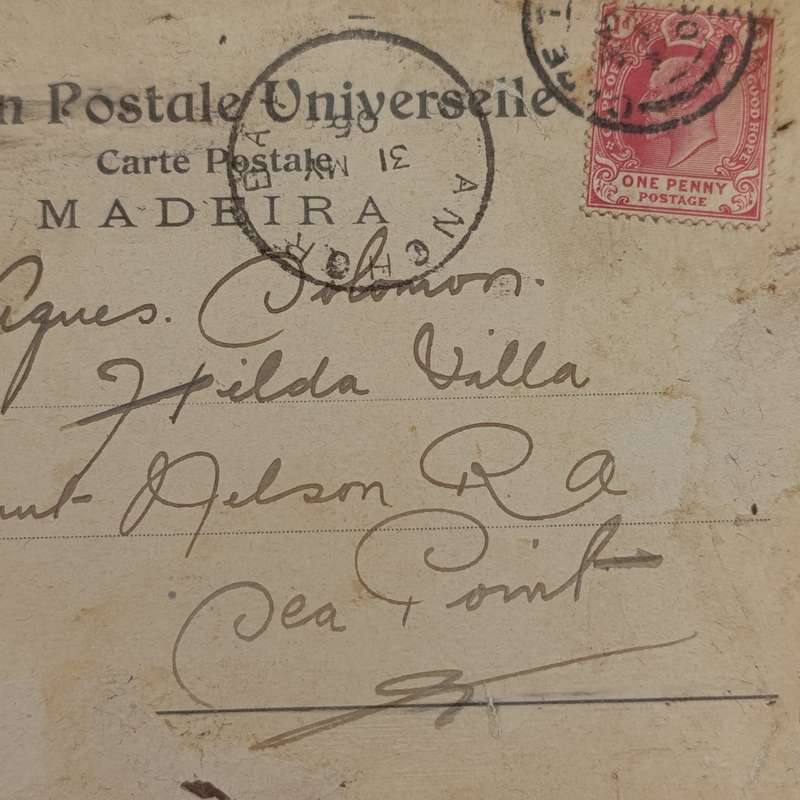 n Postale Universelle
Carte Postale
MADEIRA
ANCHOR BAY
31 MY 06
CAPE OF GOOD HOPE
ONE PENNY
POSTAGE
Agnes. Solomon.
Hilda Villa
Nelson Rd
Sea Point